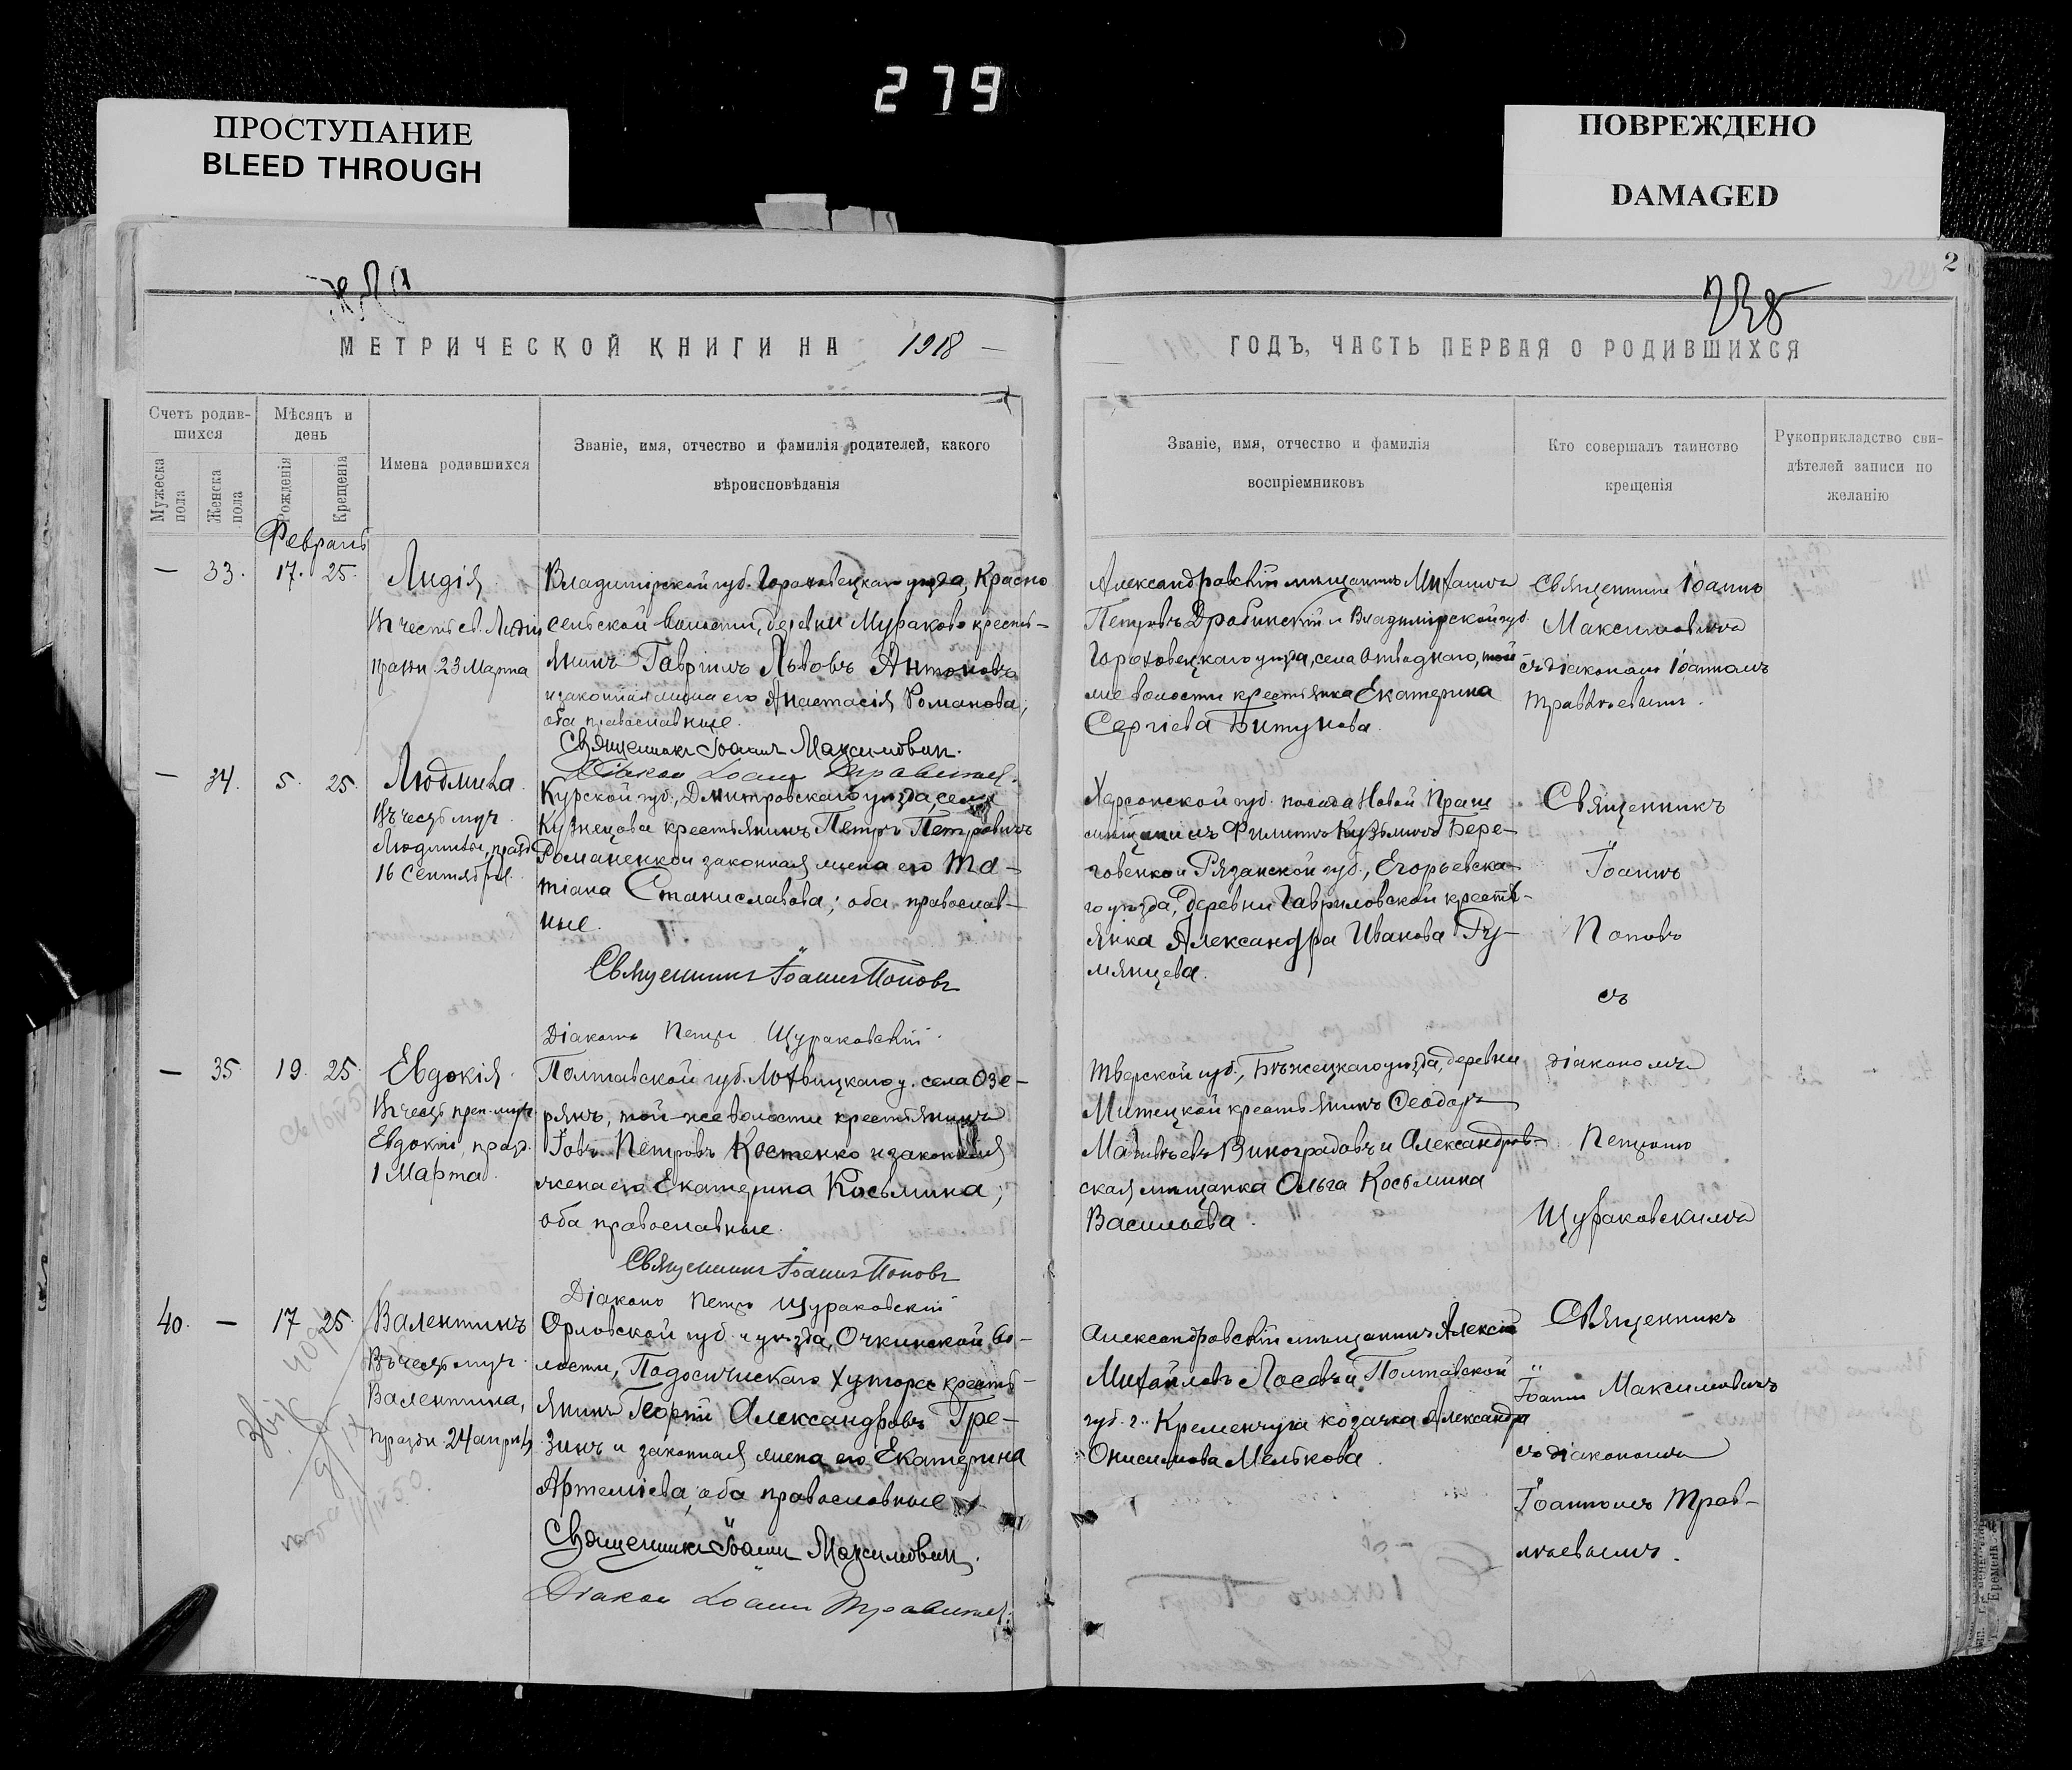 279
ПРОСТУПАНИЕ
BLEED THROUGH
ПОВРЕЖДЕНО
DAMAGED
2
МЕТРИЧЕСКОЙ КНИГИ НА 1918 —
ГОДЪ, ЧАСТЬ ПЕРВАЯ О РОДИВШИХСЯ
Счетъ родив-
шихся
Мужеска пола
Женска пола
Мѣсяцъ и
день
Рожденія
Крещенія
Имена родившихся
Званіе, имя, отчество и фамилія родителей, какого
вѣроисповѣданія
Званіе, имя, отчество и фамилія
воспріемниковъ
Кто совершалъ таинство
крещенія
Рукоприкладство сви-
дѣтелей записи по
желанію
Февраль
— 33. 17. 25.
Лидія
Въ честь св. Лидіи
праздн. 23 Марта
Владимірской губ. Гороховецкаго уѣзда, Красно
сельской волости, деревни Мураково кресть-
янинъ Гавріилъ Львовъ Антоновъ
и законная жена его Анастасія Романова;
оба православные.
Священникъ Іоаннъ Максимович.
Діакон Іоанн
Александровскій мѣщанинъ Михаилъ
Петровъ Драбинскій и Владимірской губ.
Гороховецкаго уѣзда, села той
же волости крестьянка Екатерина
Сергіева Битунова.
Священникъ Іоаннъ
Максимовичъ
съ діакономъ Іоанномъ
Травлѣевымъ.
— 34. 5. 25.
Людмила
Въ честь муч.
Людмилы, празд.
16 Сентября.
Курской губ., Дмитровскаго уѣзда, села
Кузнецова крестьянинъ Петръ Петровичъ
Романенко и законная жена его Та-
тіана Станиславова; оба православ-
ные.
Священникъ Іоаннъ Поповъ
Діаконъ Петръ Щураковскій.
Херсонской губ. посада Новой Праги
мѣщанинъ Филиппъ Кузьминъ Бере-
говенко и Рязанской губ., Егорьевска-
го уѣзда, деревни Гавриловской кресть-
янка Александра Иванова Ру-
мянцева.
Священникъ
Іоаннъ
Поповъ
съ
— 35. 19. 25.
Евдокія.
Въ честь преп.-муч.
Евдокіи, празд.
1 Марта.
Полтавской губ. Лохвицкаго у. села Озе-
рянъ, той-же волости крестьянинъ
Іовъ Петровъ Костенко и законная
жена его Екатерина Косьмина;
оба православные.
Священникъ Іоаннъ Поповъ
Діаконъ Петръ Щураковскій
Тверской губ., Бѣжецкаго уѣзда, деревни
крестьянинъ Ѳеодоръ
Матвѣевъ Виноградовъ и Александров-
ская мѣщанка Ольга Косьмина
Васильева.
діакономъ
Петромъ
Щураковскимъ
40. — 17 25.
Валентинъ
Въ честь муч.
Валентина,
праздн. 24 апрѣля
Орловской губ. и уѣзда, Очкинской во-
лости, хутора кресть-
янинъ Георгій Александровъ Гре-
зинъ и законная жена его Екатерина
Артеміева, оба православные
Священникъ Іоаннъ Максимович.
Діакон Іоанн
Александровскій мѣщанинъ Алексій
Михайловъ Лосевъ и Полтавской
губ. г. Кременчуга козачка Александра
Онисимова Мелькова.
Священникъ
Іоаннъ Максимовичъ
съ діакономъ
Іоанномъ Трав-
лѣевымъ.